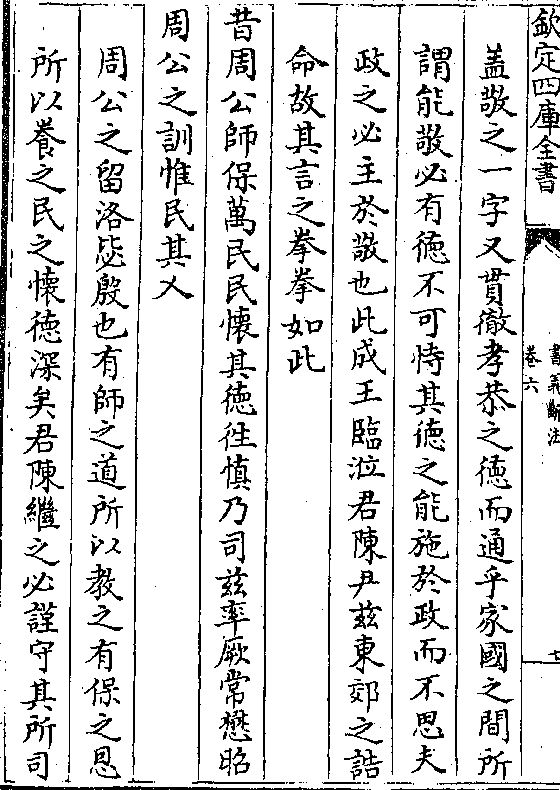 欽定四庫全書
書義斷法
卷六
盖敬之一字又貫徹孝恭之徳而通乎家國之間所
謂能敬必有徳不可恃其徳之能施於政而不思夫
政之必主於敬也此成王臨涖君陳尹兹東郊之誥
命故其言之拳拳如此
昔周公師保萬民民懐其徳徃慎乃司兹率厥常懋昭
周公之訓惟民其乂
周公之留洛毖殷也有師之道所以教之有保之恩
所以養之民之懐徳深矣君陳繼之必謹守其所司